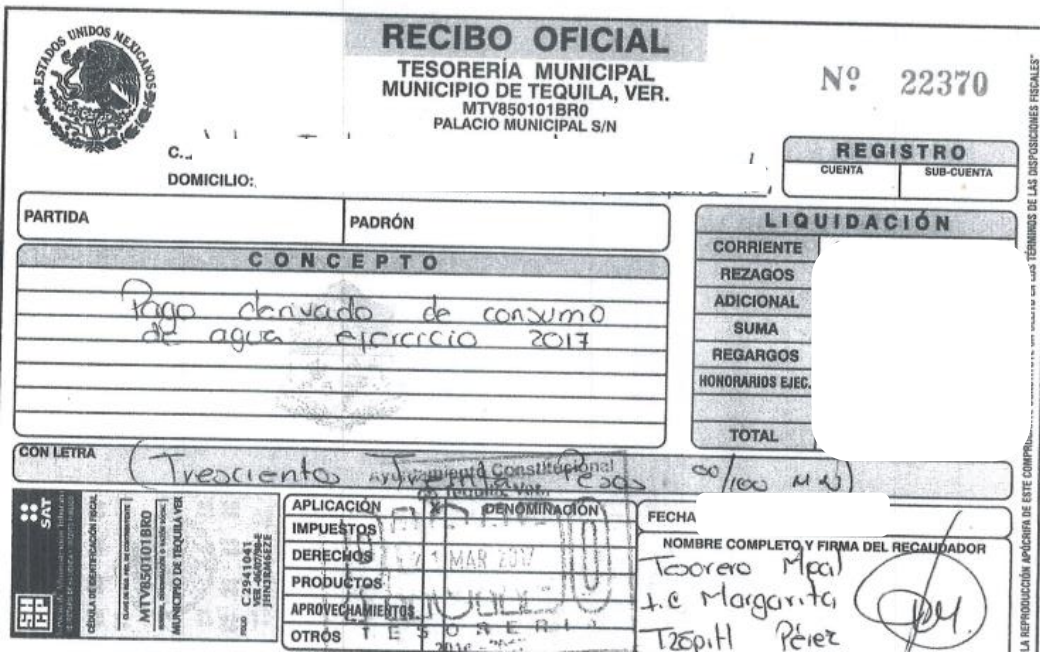 ESTADOS UNIDOS MEXICANOS
RECIBO OFICIAL
TESORERÍA MUNICIPAL
MUNICIPIO DE TEQUILA, VER.
MTV850101BR0
PALACIO MUNICIPAL S/N
Nº 22370
C.
DOMICILIO:
REGISTRO
CUENTA SUB-CUENTA
PARTIDA PADRÓN
CONCEPTO
Pago derivado de consumo
de agua ejercicio 2017
LIQUIDACIÓN
CORRIENTE
REZAGOS
ADICIONAL
SUMA
REGARGOS
HONORARIOS EJEC.
TOTAL
CON LETRA
(Trescientos Pesos 00/100 MN)
Ayuntamiento Constitucional
de Tequila, Ver.
SAT
SHCP
CÉDULA DE IDENTIFICACIÓN FISCAL
MTV850101BR0
MUNICIPIO DE TEQUILA VER
FOLIO C2941041
APLICACIÓN X DENOMINACIÓN
IMPUESTOS
DERECHOS
PRODUCTOS
APROVECHAMIENTOS
OTROS
21 MAR 2017
TESORERIA
FECHA
NOMBRE COMPLETO Y FIRMA DEL RECAUDADOR
Tesorero Mpal
L.C Margarita
Tzopitl Pérez
LA REPRODUCCIÓN APÓCRIFA DE ESTE EN LOS TÉRMINOS DE LAS DISPOSICIONES FISCALES"